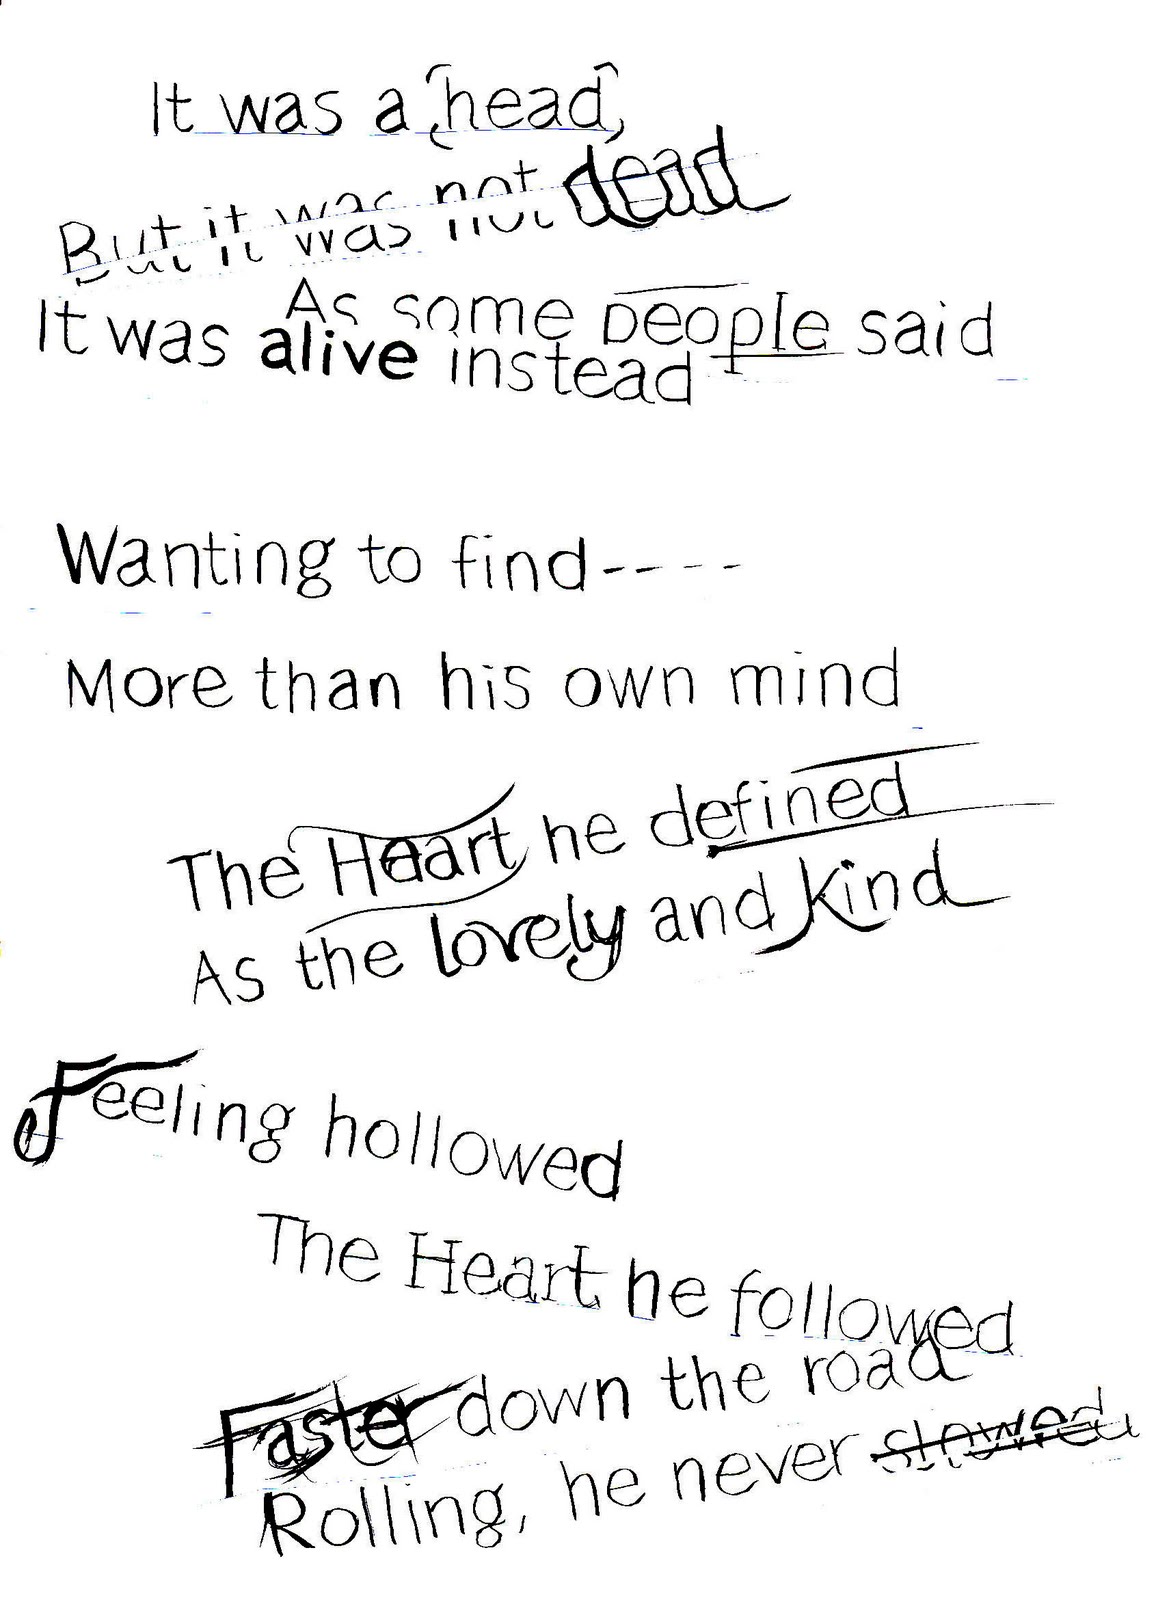 It was a head,
But it was not dead
As some people said
It was alive instead
Wanting to find----
More than his own mind
The Heart he defined
As the lovely and kind
Feeling hollowed
The Heart he followed
Faster down the road
Rolling, he never slowed